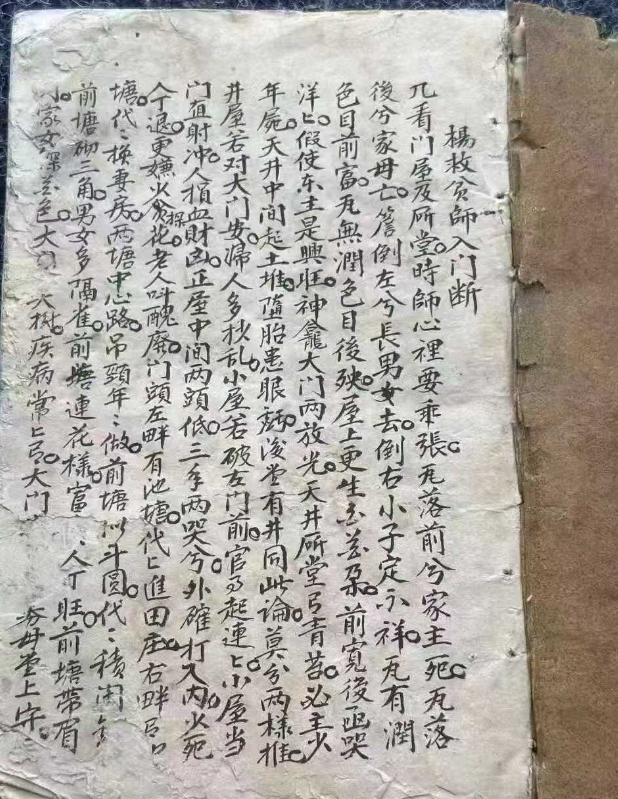 楊救貧師入门断
凡看門屋及𠩄堂時師心裡要乖張瓦落前兮家主死瓦落
後兮家毋亡簷倒左兮長男女去倒右小子定不祥瓦有潤
色目前富瓦無潤色目後殃屋上更生出蕊朶前寬後逼哭
洋ヒ假使东主是興旺神龕大门两放光天井𠩄堂有青苔必主少
年屍天井中间起土堆墮胎患眼疾後堂有井同此論莫兮两樣推
井屋若对大门安婦人多抄乱小屋若破左门前官司起連ヒ小屋当
门直射冲人損血財凶正屋中间两頭低三年两哭兮外確打入内火死
人丁退更嫌火貪探花老人叫醜廃门頭左畔有池塘代ヒ進田庄右畔有口
塘代ヽ换妻房两塘中心路吊頸年ヽ做前塘似斗圆代ヽ積闲
前塘砌三角男女多隔雀前塘連花樣富 人丁旺前塘帶眉
家女 色大门 大樹疾病常ヒ有大门 毋堂上守